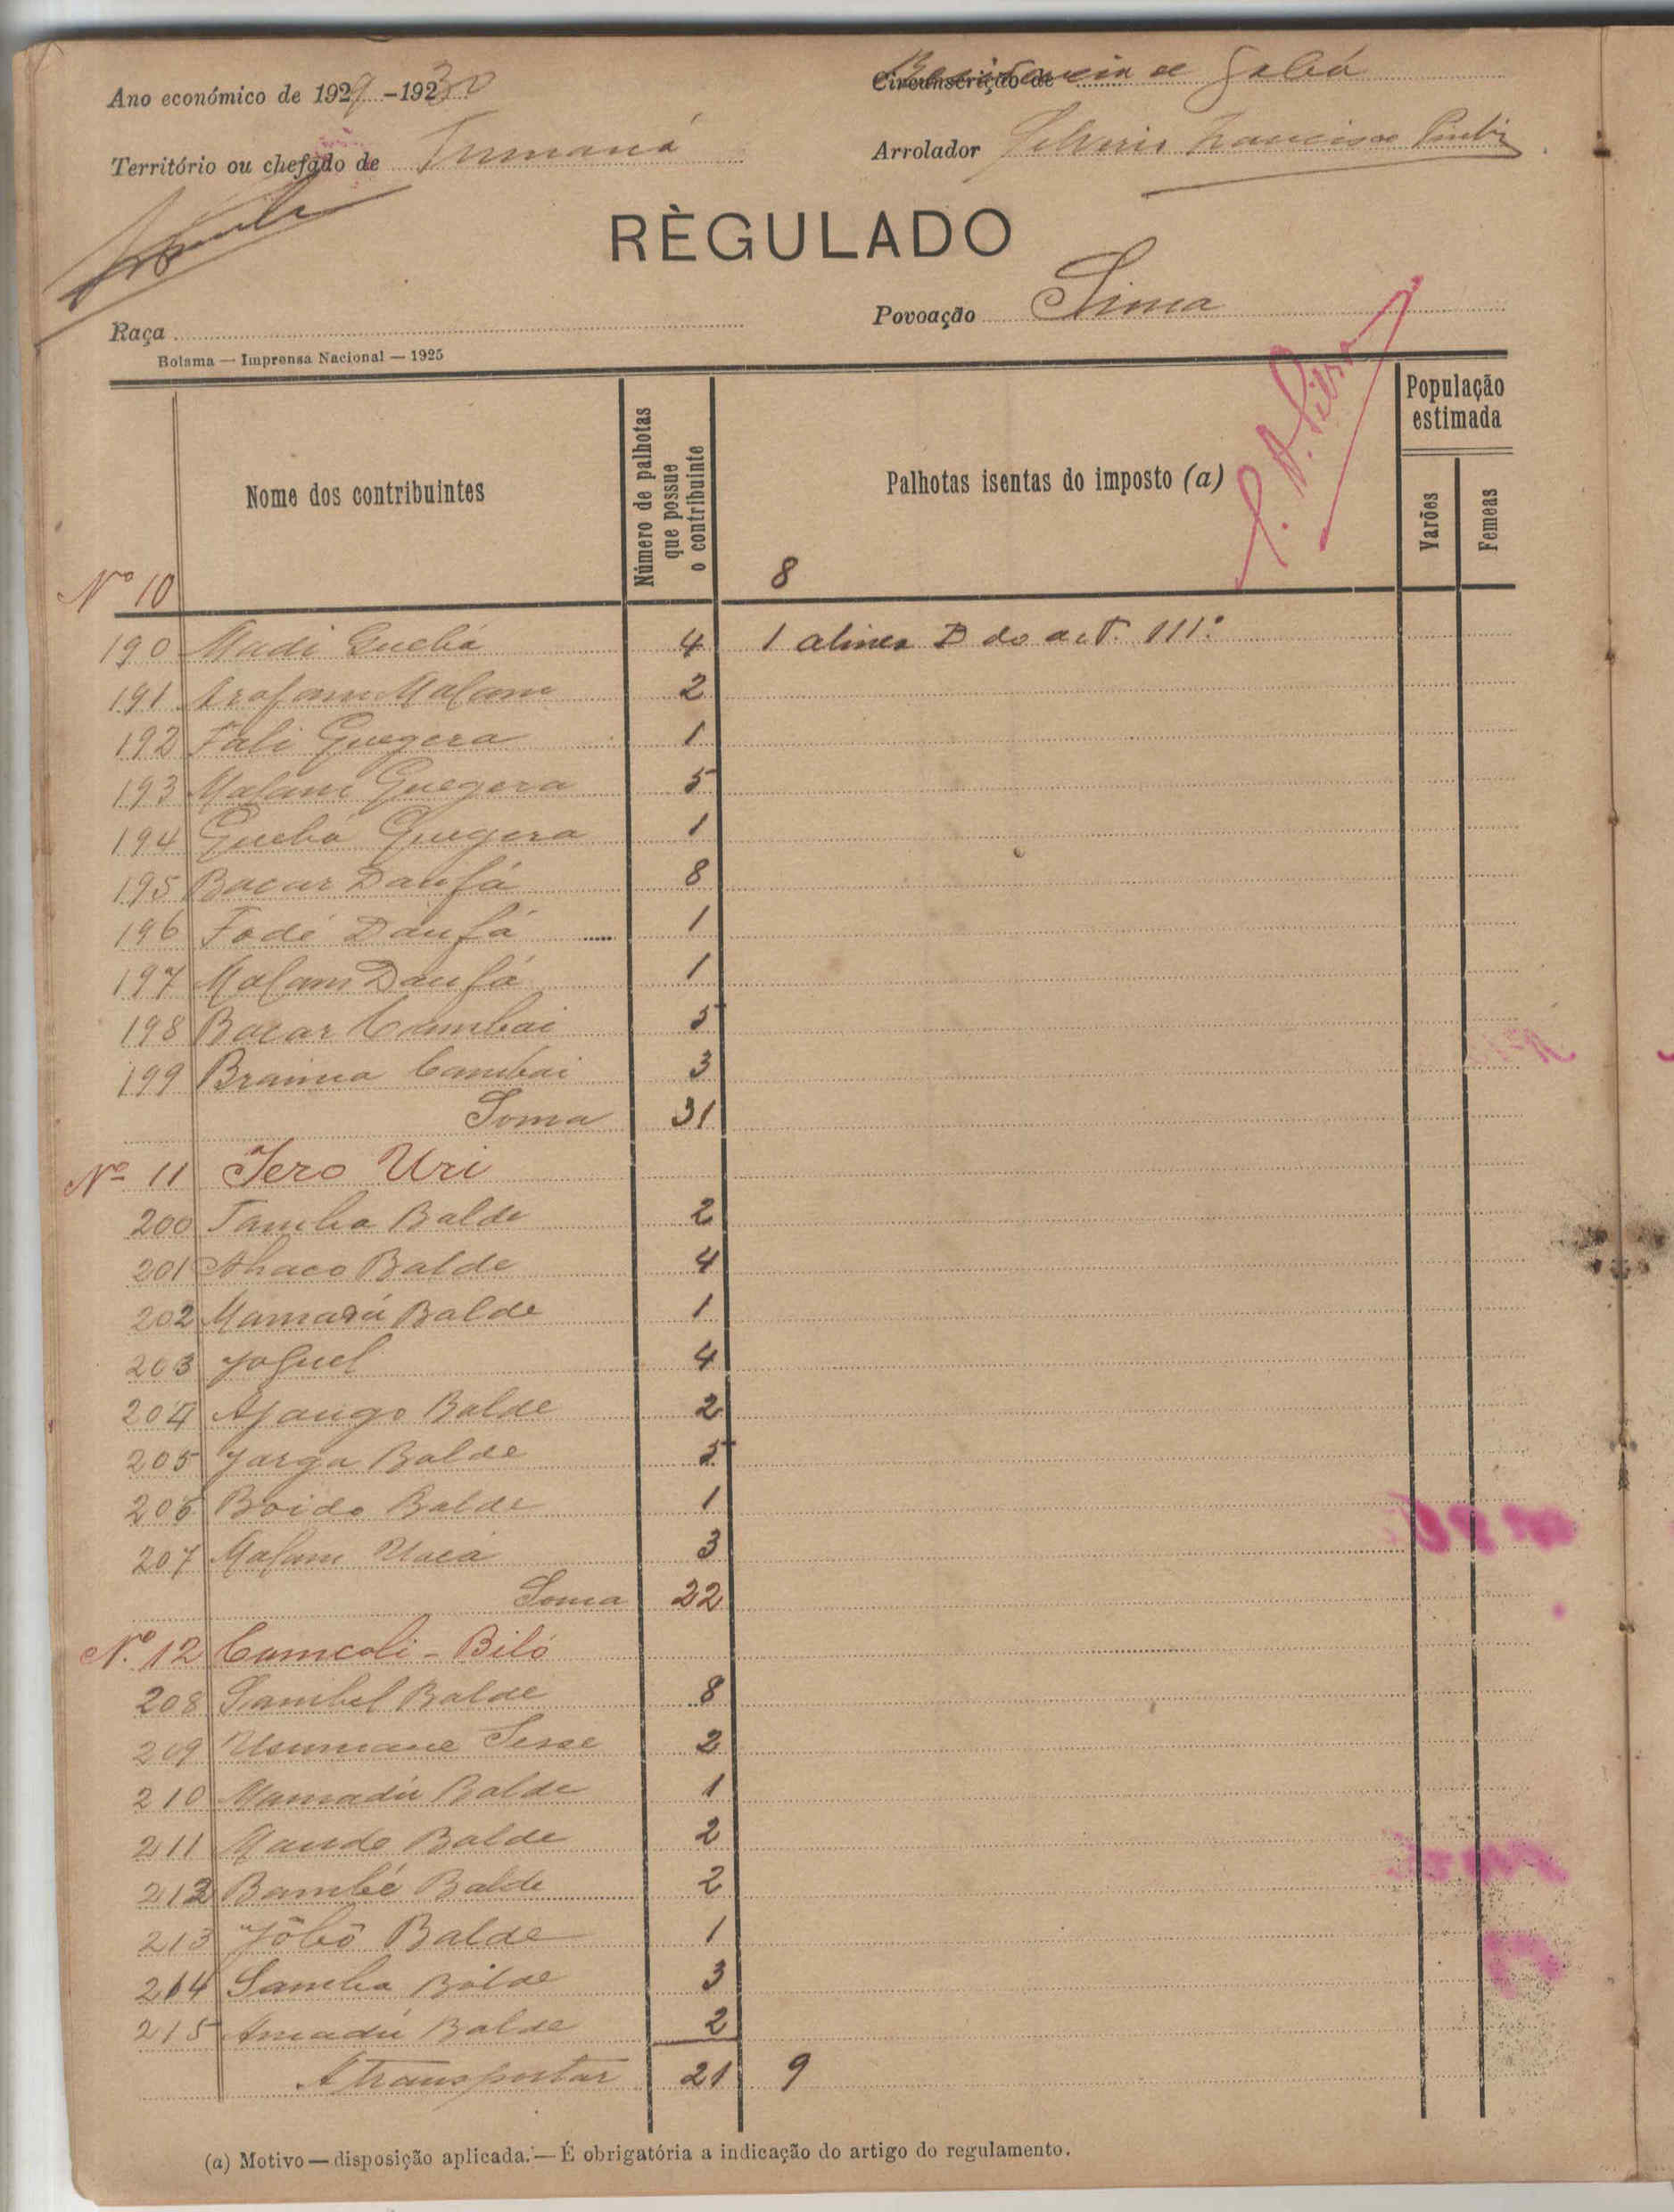 Ano económico de 1929 - 1930
Circunscrição de de Gabú
Território ou chefado de Tumaná
Arrolador Francisco
RÈGULADO
Raça
Povoação Sima
Bolama — Imprensa Nacional — 1925
Nome dos contribuintes
Número de palhotas que possue o contribuinte
Palhotas isentas do imposto (a)
População estimada
Varões
Femeas
Nº 10 8
190 Madi Quebá 4 1 alinea D do art. 111.º
191 Arafam Malam 2
192 Fali Guegera 1
193 Malam Guegera 5
194 Quebá Guegera 1
195 Bacar Danfá 8
196 Fodé Danfá 1
197 Malam Danfá 1
198 Bacar Cambai 5
199 Braima Cambai 3
Soma 31
Nº 11 Jero Uri
200 Tamba Balde 2
201 Balde 4
202 Mamadú Balde 1
203 4
204 Balde 2
205 Jarga Balde 5
206 Boido Balde 1
207 Malam 3
Soma 22
Nº 12 Camcoli - Biló
208 Sambel Balde 8
209 Usumane Sesse 2
210 Mamadú Balde 1
211 Maude Balde 2
212 Bambé Balde 2
213 Jôbô Balde 1
214 Samba Balde 3
215 Amadú Balde 2
A transportar 21 9
(a) Motivo — disposição aplicada. — É obrigatória a indicação do artigo do regulamento.